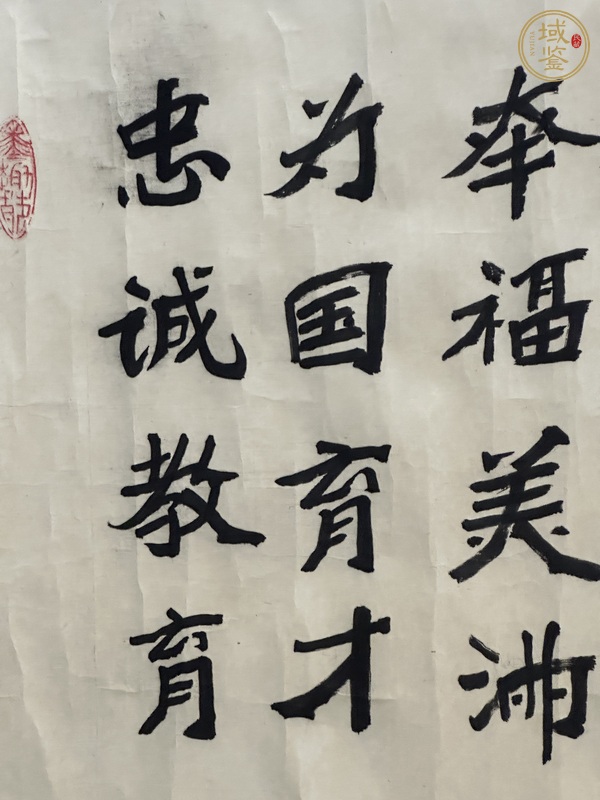 幸福美满
为国育才
忠诚教育
域鉴
YUJIAN